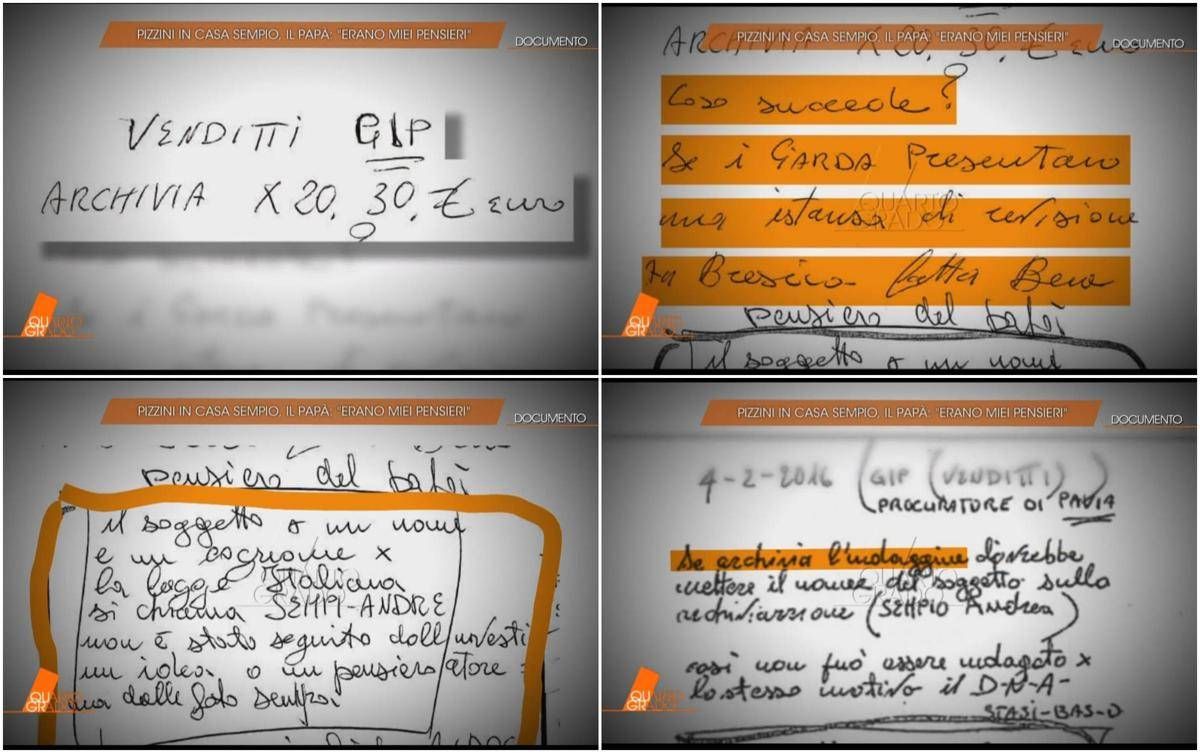 PIZZINI IN CASA SEMPIO, IL PAPÀ: "ERANO MIEI PENSIERI"
DOCUMENTO
VENDITTI GIP
ARCHIVIA X 20. 30. € euro
QUARTO
GRADO
PIZZINI IN CASA SEMPIO, IL PAPÀ: "ERANO MIEI PENSIERI"
DOCUMENTO
ARCHIVIA X 20. 30. € euro
Cosa succede?
Se i GARDA Presentano
una istansa di revisione
Brescia fatta Bene
pensiero del
il soggetto a un nome
QUARTO
GRADO
QUARTO
GRADO
PIZZINI IN CASA SEMPIO, IL PAPÀ: "ERANO MIEI PENSIERI"
DOCUMENTO
pensiero del
il soggetto a un nome
e un cognome x
la legge Italiana
si chiama SEMPI-ANDRE
non è stato seguito dall investi
un idea o un pensiero atore
dalle foto
QUARTO
GRADO
PIZZINI IN CASA SEMPIO, IL PAPÀ: "ERANO MIEI PENSIERI"
DOCUMENTO
4-2-2016 (GIP (VENDITTI))
(PROCURATORE DI PAVIA
Se archivia l'indaggine dovrebbe
mettere il nome del soggetto sulla
(SEMPIO Andrea)
cosi non può essere indagato x
lo stesso motivo il D-N-A-
STASI-BAS-D
QUARTO
GRADO